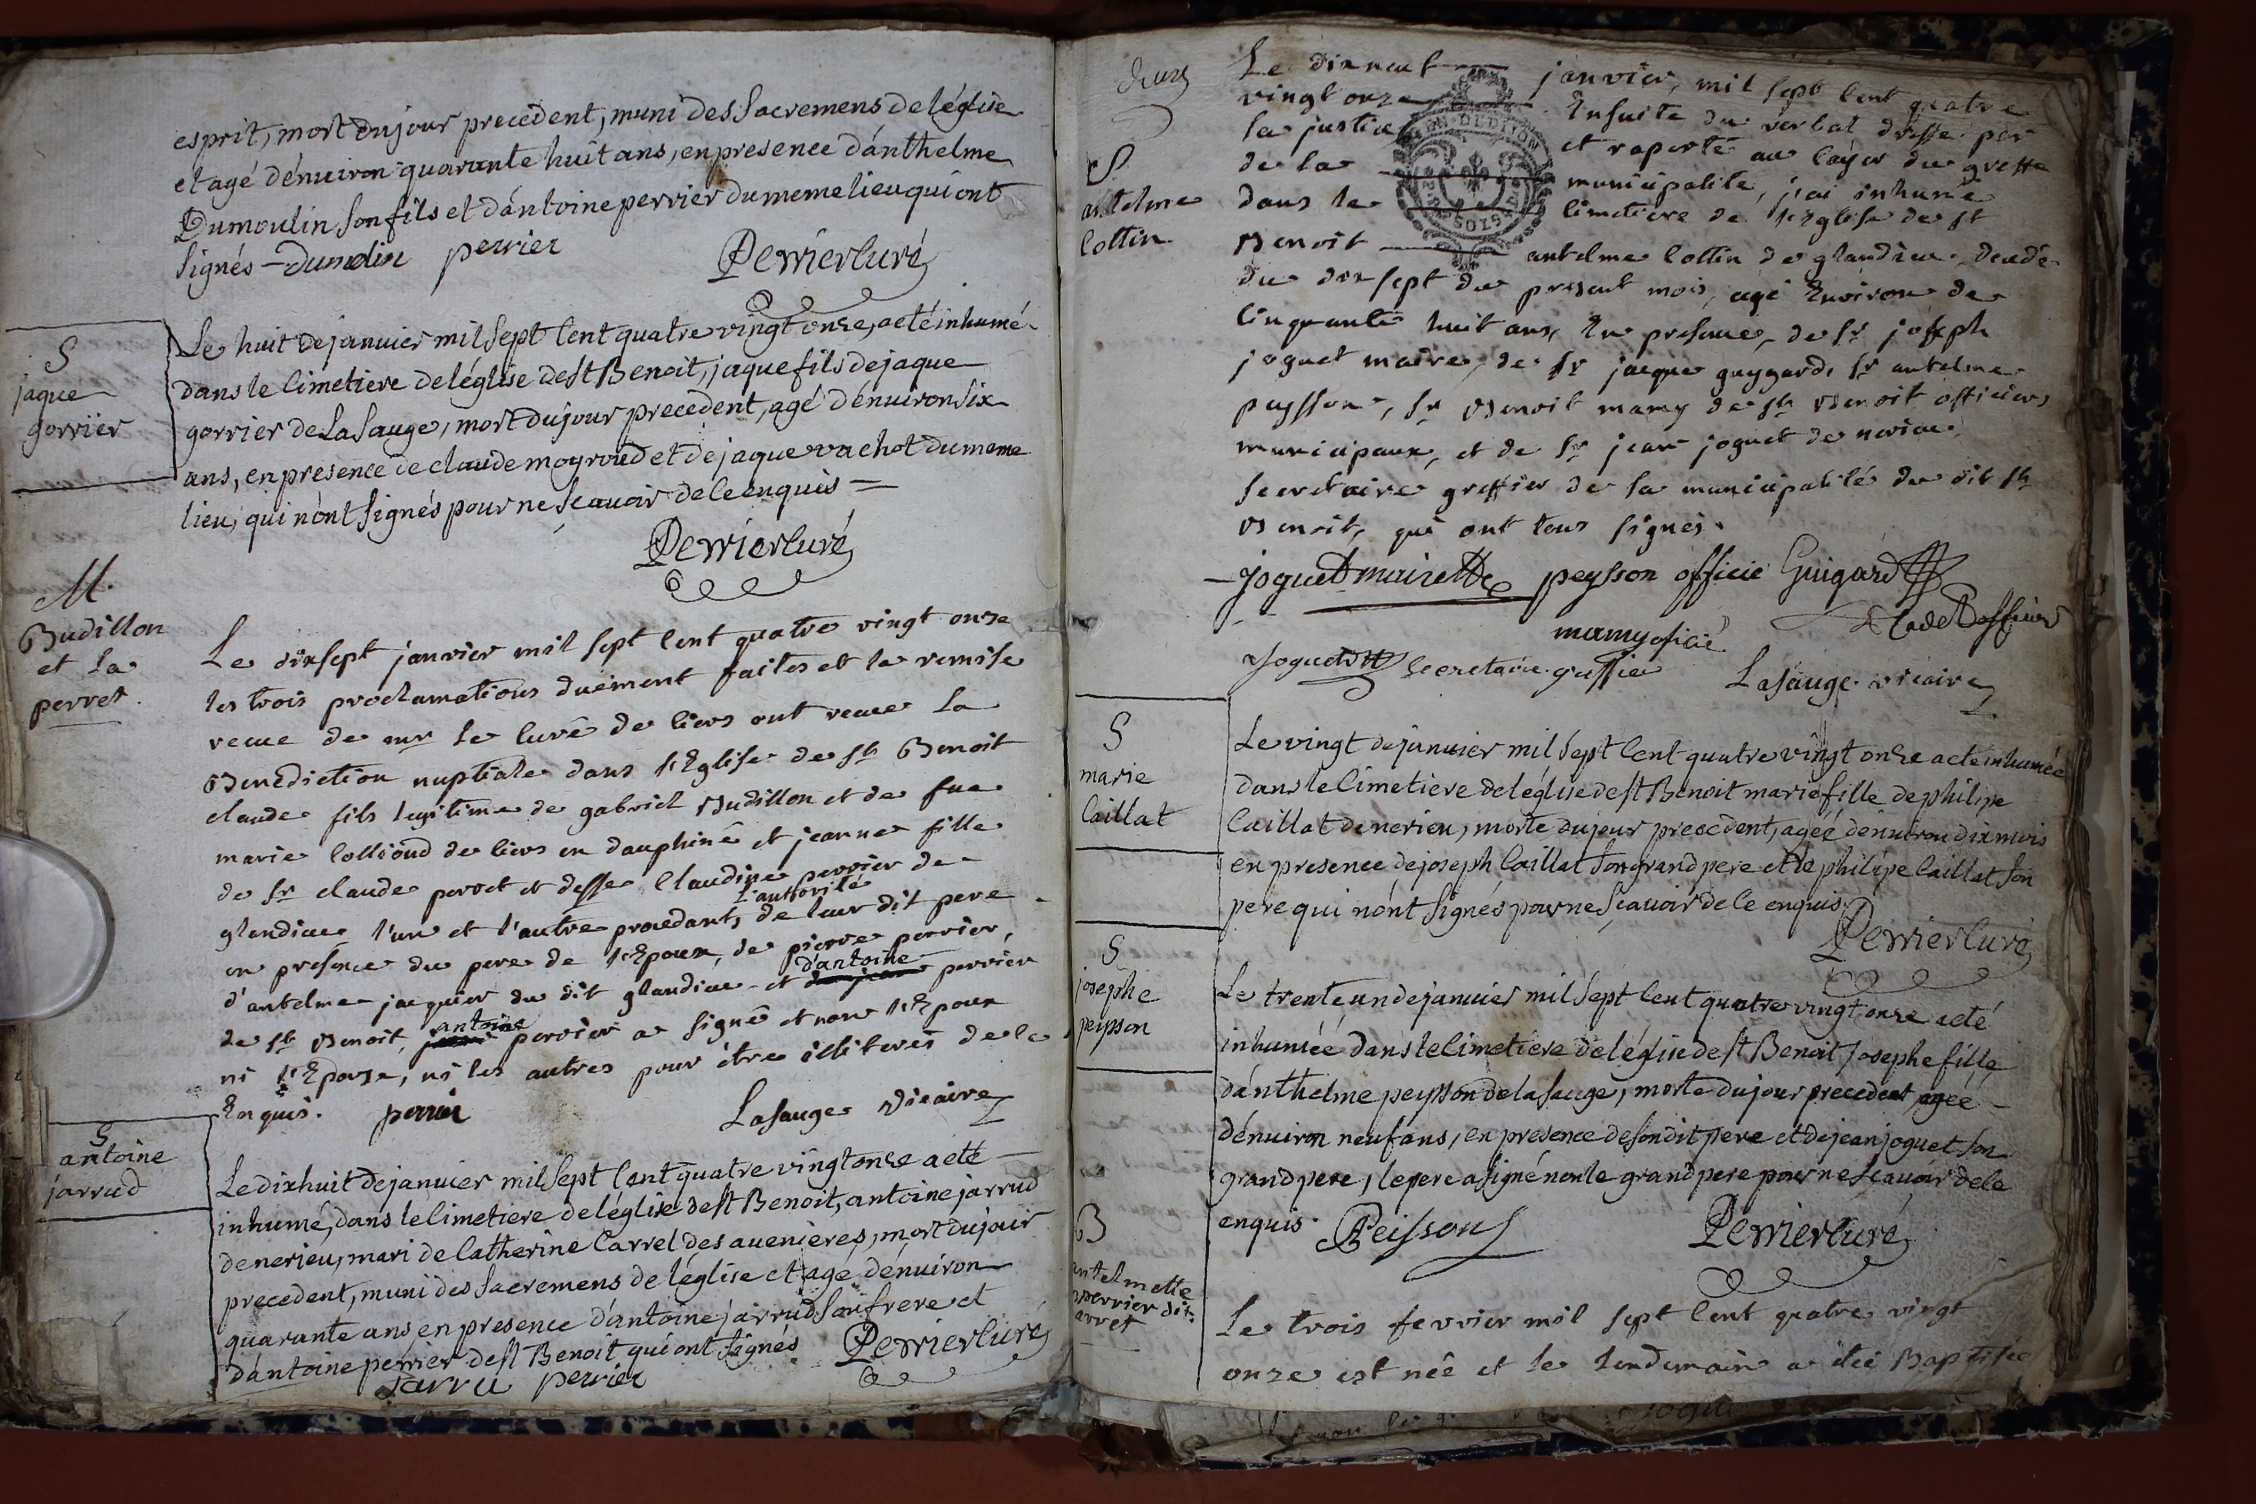 esprit, mort du jour precedent, muni des Sacremens de léglise
et agé dénuiron quarante huit ans, en presence dánthelme
Dumoulin son fils et dántoine perrier du meme lieu qui ont
signés - dumolin perrier Perrier Curé
S
jaque
gorrier
Le huit de janvier mil sept Cent quatre vingt onze, a eté inhumé
dans le Cimetiere de léglise de st Benoit, jaque fils de jaque
gorrier de La Sauge, mort du jour precedent, agé dénuiron six
ans, en presence de claude moyroud et de jaque vachot du meme
lieu, qui nónt signés pour ne scauoir de ce enquis =
Perrier Curé
M.
Budillon
et la
perret.
Le dixsept janvier mil sept Cent quatre vingt onze
les trois proclamations duëment faites et la remise
recue de mr le Curé de Ciers ont recue la
Benediction nuptiale dans l'Eglise de st Benoit
claude fils legitime de gabriel Budillon et de fue
marie Colliôud de Ciers en dauphiné et jeanne fille
de sr claude perret et desse Claudine perrier de
glandieu l'un et l'autre procedants de l'authorité leur dit pere
en presence du pere de l'Epoux, de pierre perrier,
d'antelme jacquier du dit glandieu et d'antoine perrier
de st Benoit, antoine perrier a signé et non l'Epoux
ni l'Epouse, ni les autres pour être illiterés de ce
Enquis. perrier Lasauge Vicaire
S
antoine
jarrud
Le dixhuit de janvier mil sept Cent quatre vingt onze a eté
inhumé, dans le Cimetiere de léglise de st Benoit, antoine jarrud
de nerieu, mari de Catherine Carrel des auenieres, mort du jour
precedent, muni des Sacremens de léglise et agé dénuiron
quarante ans en presence dántoine jarrud son frere et
dántoine perrier de st Benoit qui ont signés Perrier Curé
Jarru perrier
deux
S.
antelme
Cottin
Le dix neuf janvier, mil sept Cent quatre
vingt onze Ensuite du verbal dressé par
la justice et raporté au Cayer du greffe
de la municipalité, j'ai inhumé
dans le Cimetiere de l'Eglise de st
Benoit antelme Cottin de glandieu, decedé
du dix sept du present mois, agé Environ de
Cinquante huit ans, En presence, de sr joseph
joguet maire, de sr jacque guygard, sr antelme
peysson, sr Benoit mamy de st Benoit officiers
municipaux, et de sr jean joguet de nerieu
secretaire greffier de la municipalité du dit st
Benoit, qui ont tous signés.
joguet maire peysson officié Guigard
mamy oficié officier
joguet secretaire greffie Lasauge vicaire
S
marie
Caillat
Le vingt de janvier mil sept Cent quatre vingt onze a eté inhumée
dans le Cimetiere de léglise de st Benoit marie fille de philipe
Caillat de nerieu, morte du jour precedent, agéé dénuiron dix mois
en presence de joseph Caillat son grand pere et de philipe Caillat son
pere qui nónt signés pour ne scauoir de ce enquis.
Perrier Curé
S
josephe
peysson
Le trente un de janvier mil sept Cent quatre vingt onze a eté
inhuméé dans le Cimetiere de léglise de st Benoit, Josephe fille
dánthelme peysson de la sauge, morte du jour precedent agéé
dénuiron neuf ans, en presence de son dit pere et de jean joguet son
grand pere, le pere a signé non le grand pere pour ne scauoir de ce
enquis. Peisson Perrier Curé
B
antelmette
perrier dit
arret
Le trois fevrier mil sept Cent quatre vingt
onze est neé et le lendemain a eteé Baptiseé